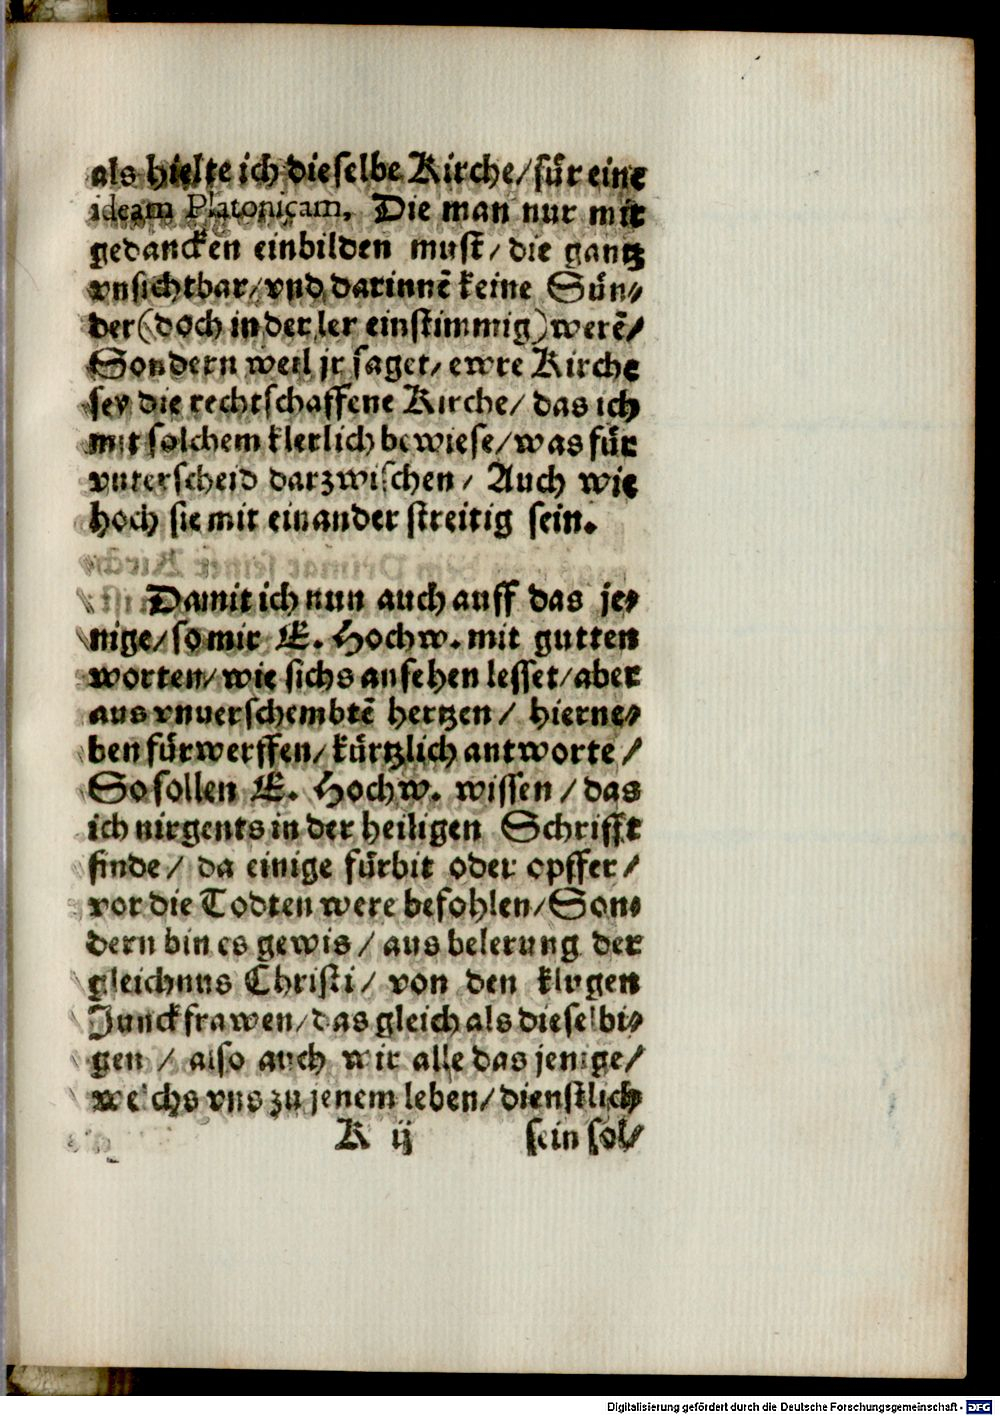 als hielte ich dieselbe Kirche/ für eine
ideam Platonicam, Die man nur mit
gedancken einbilden must/ die gantz
vnsichtbar/ vnd darinnē keine Sün⸗
der (doch in der ler einstimmig) werē/
Sondern weil jr saget/ ewre Kirche
sey die rechtschaffene Kirche/ das ich
mit solchem klerlich bewiese/ was für
vnterscheid darzwischen/ Auch wie
hoch sie mit einander streitig sein.
Damit ich nun auch auff das je⸗
nige/ so mir E. Hochw. mit gutten
worten/ wie sichs ansehen lesset/ aber
aus vnuerschembtē hertzen/ hierne⸗
ben fürwerffen/ kürtzlich antworte/
So sollen E. Hochw. wissen/ das
ich nirgents in der heiligen Schrifft
finde/ da einige fürbit oder opffer/
vor die Todten were befohlen/ Son⸗
dern bin es gewis/ aus belerung der
gleichnus Christi/ von den klugen
Junckfrawen/ das gleich als dieselbi⸗
gen/ also auch wir alle das jenige/
welchs vns zu jenem leben/ dienstlich
K ij sein sol/
Digitalisierung gefördert durch die Deutsche Forschungsgemeinschaft - DFG